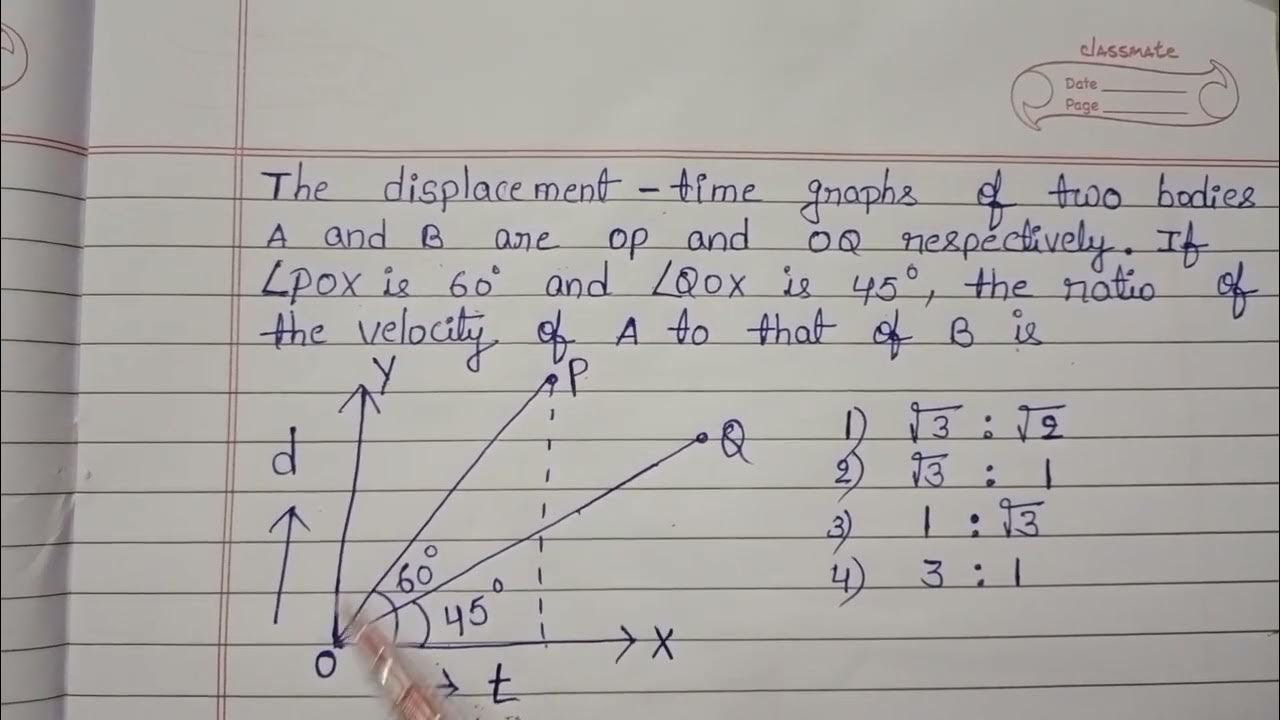 classmate
Date
Page
The displacement - time graphs of two bodies
A and B are OP and OQ respectively. If
∠POX is 60° and ∠QOX is 45°, the ratio of
the velocity of A to that of B is
Y
P
Q
d
60°
45°
O
X
→ t
1) √3 : √2
2) √3 : 1
3) 1 : √3
4) 3 : 1